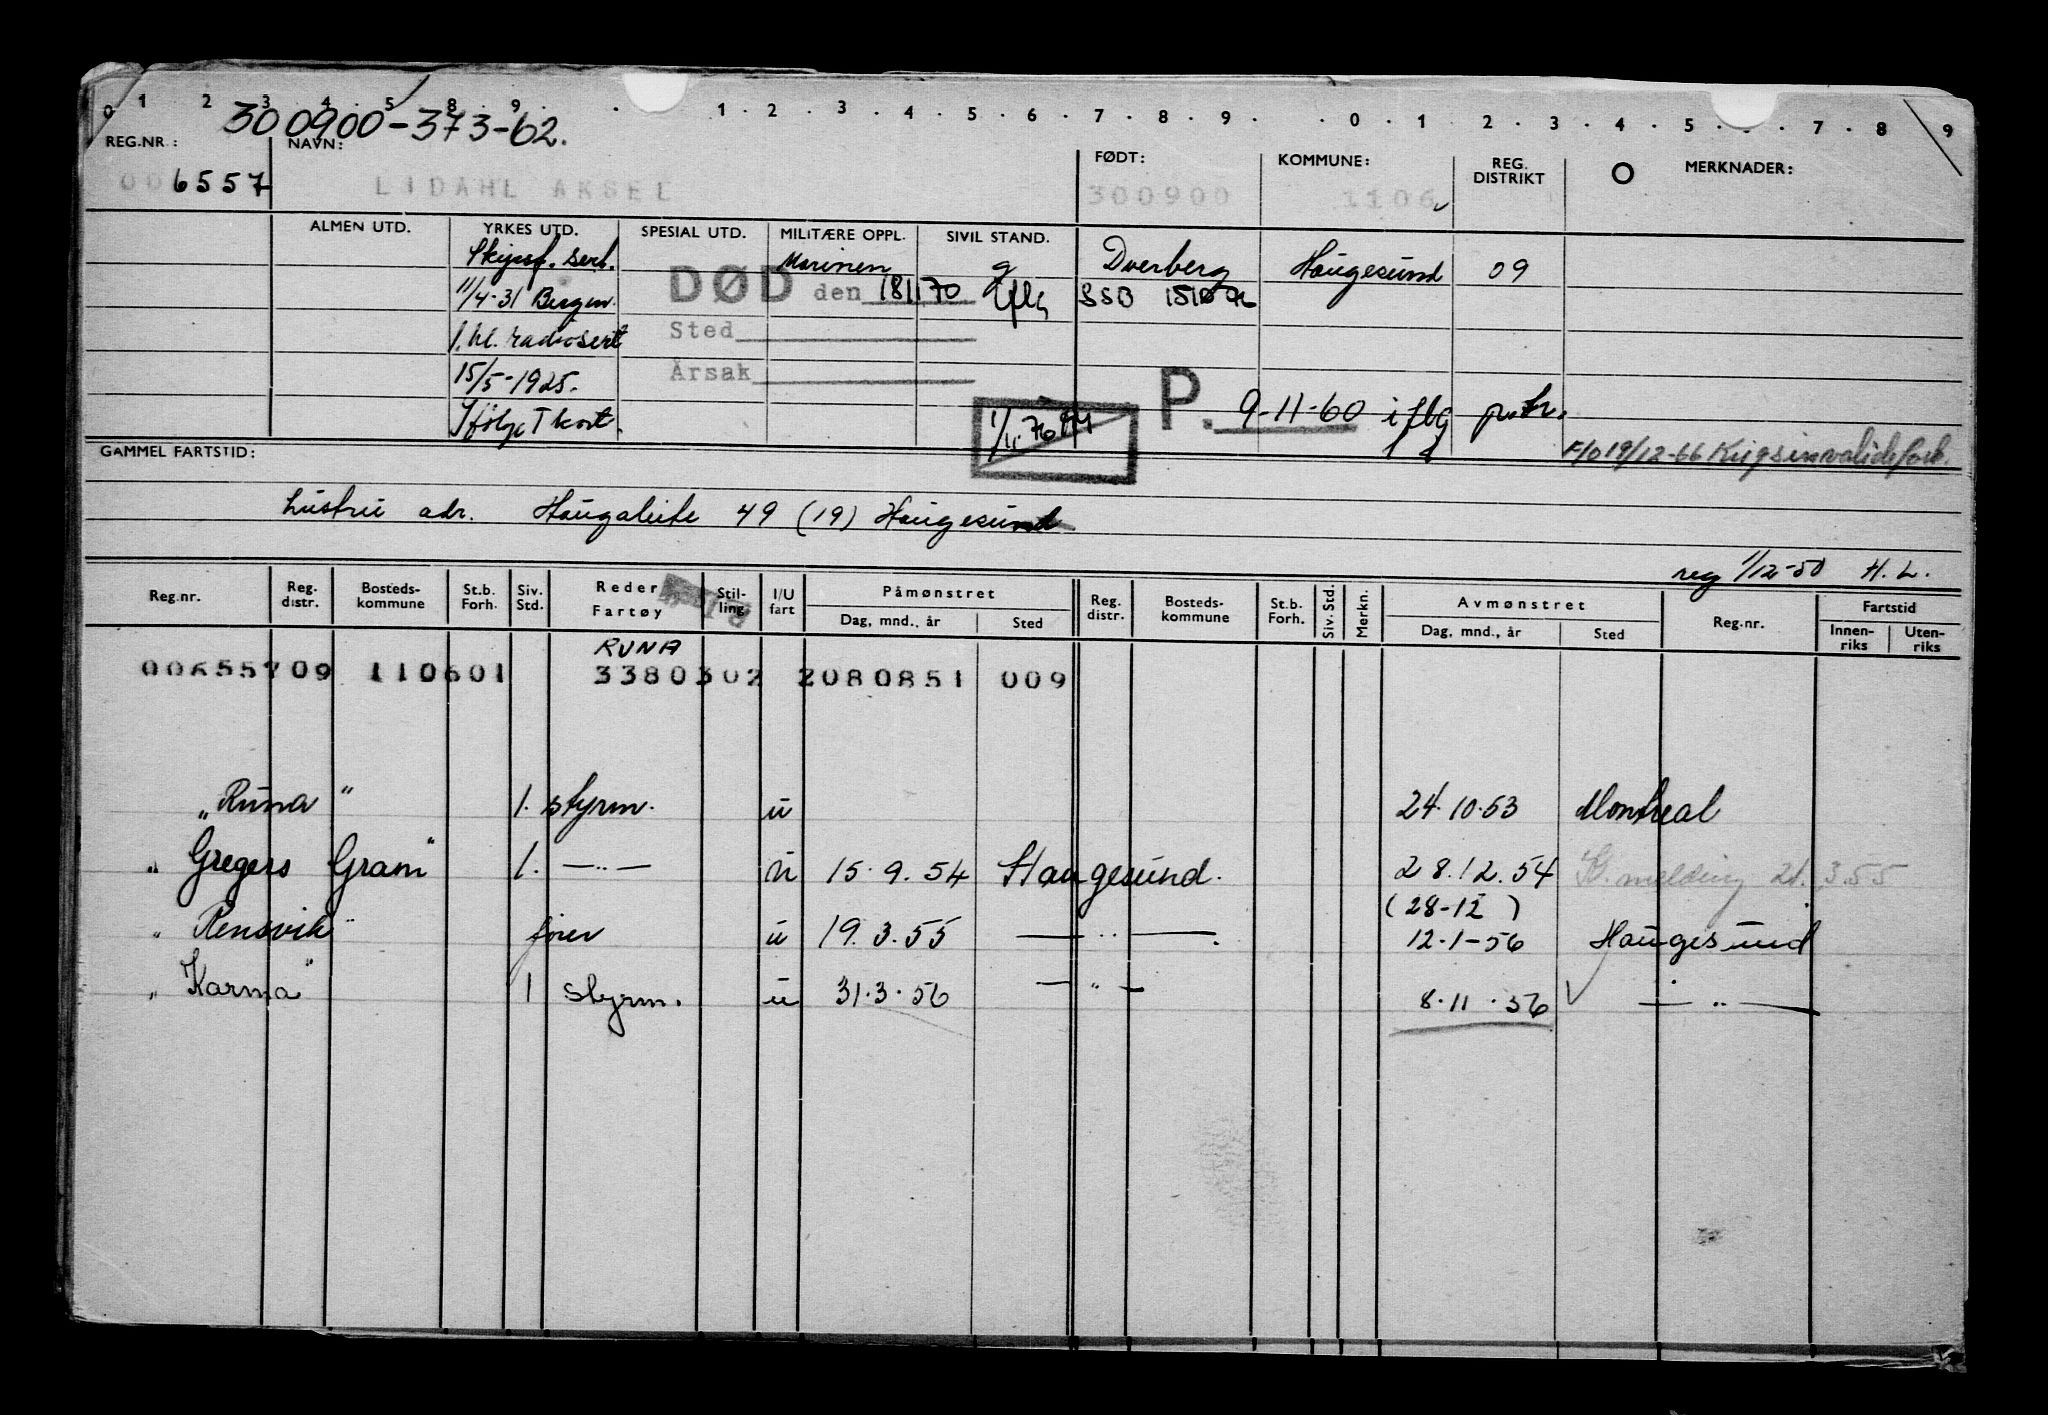 0 1 2 3 4 5 8 9 . . 1 . 2 . 3 . 4 . 5 . 6 . 7 . 8 . 9 . . 0 . 1 . 2 . 3 . 4 . 5 . . . 7 . 8 9
300900-373-62.
REG.NR.: NAVN: FØDT: KOMMUNE: REG. DISTRIKT MERKNADER:
006557 LIDAHL AKSEL 300900 1106
ALMEN UTD. YRKES UTD. SPESIAL UTD. MILITÆRE OPPL. SIVIL STAND.
Skipsf. sert. Marinen g Dverberg Haugesund 09
11/4-31 Bergen. DØD den 18 1 70 iflg SSB
1. kl. radiosert Sted
15/5-1925. Årsak
Ifølge T kort. 1/11.76 P. 9-11-60 iflg p.tr.
GAMMEL FARTSTID: F/o 19/12-66 Krigsinvalideforb.
hustru adr. Haugaleite 49 (19) Haugesund
reg 1/12-50 H.L.
Reg.nr. Reg. distr. Bosteds- kommune St.b. Forh. Siv. Std. Rederi Fartøy Stil- ling I/U fart Påmønstret Dag, mnd., år Sted Reg. distr. Bosteds- kommune St.b. Forh. Siv. Std. Merkn. Avmønstret Dag, mnd., år Sted Reg.nr. Fartstid Innen- riks Uten- riks
RUNA
00655709 110601 3380302 2080851 009
"Runa" 1. styrm. u 24.10.53 Montreal
"Gregers Gram" 1. —"— u 15.9.54 Haugesund. 28.12.54 melding 21.3.55
(28-12)
"Rensvik" fører u 19.3.55 —"— 12.1-56 Haugesund
"Karma" 1 styrm. u 31.3.56 —"— 8.11.56 —"—